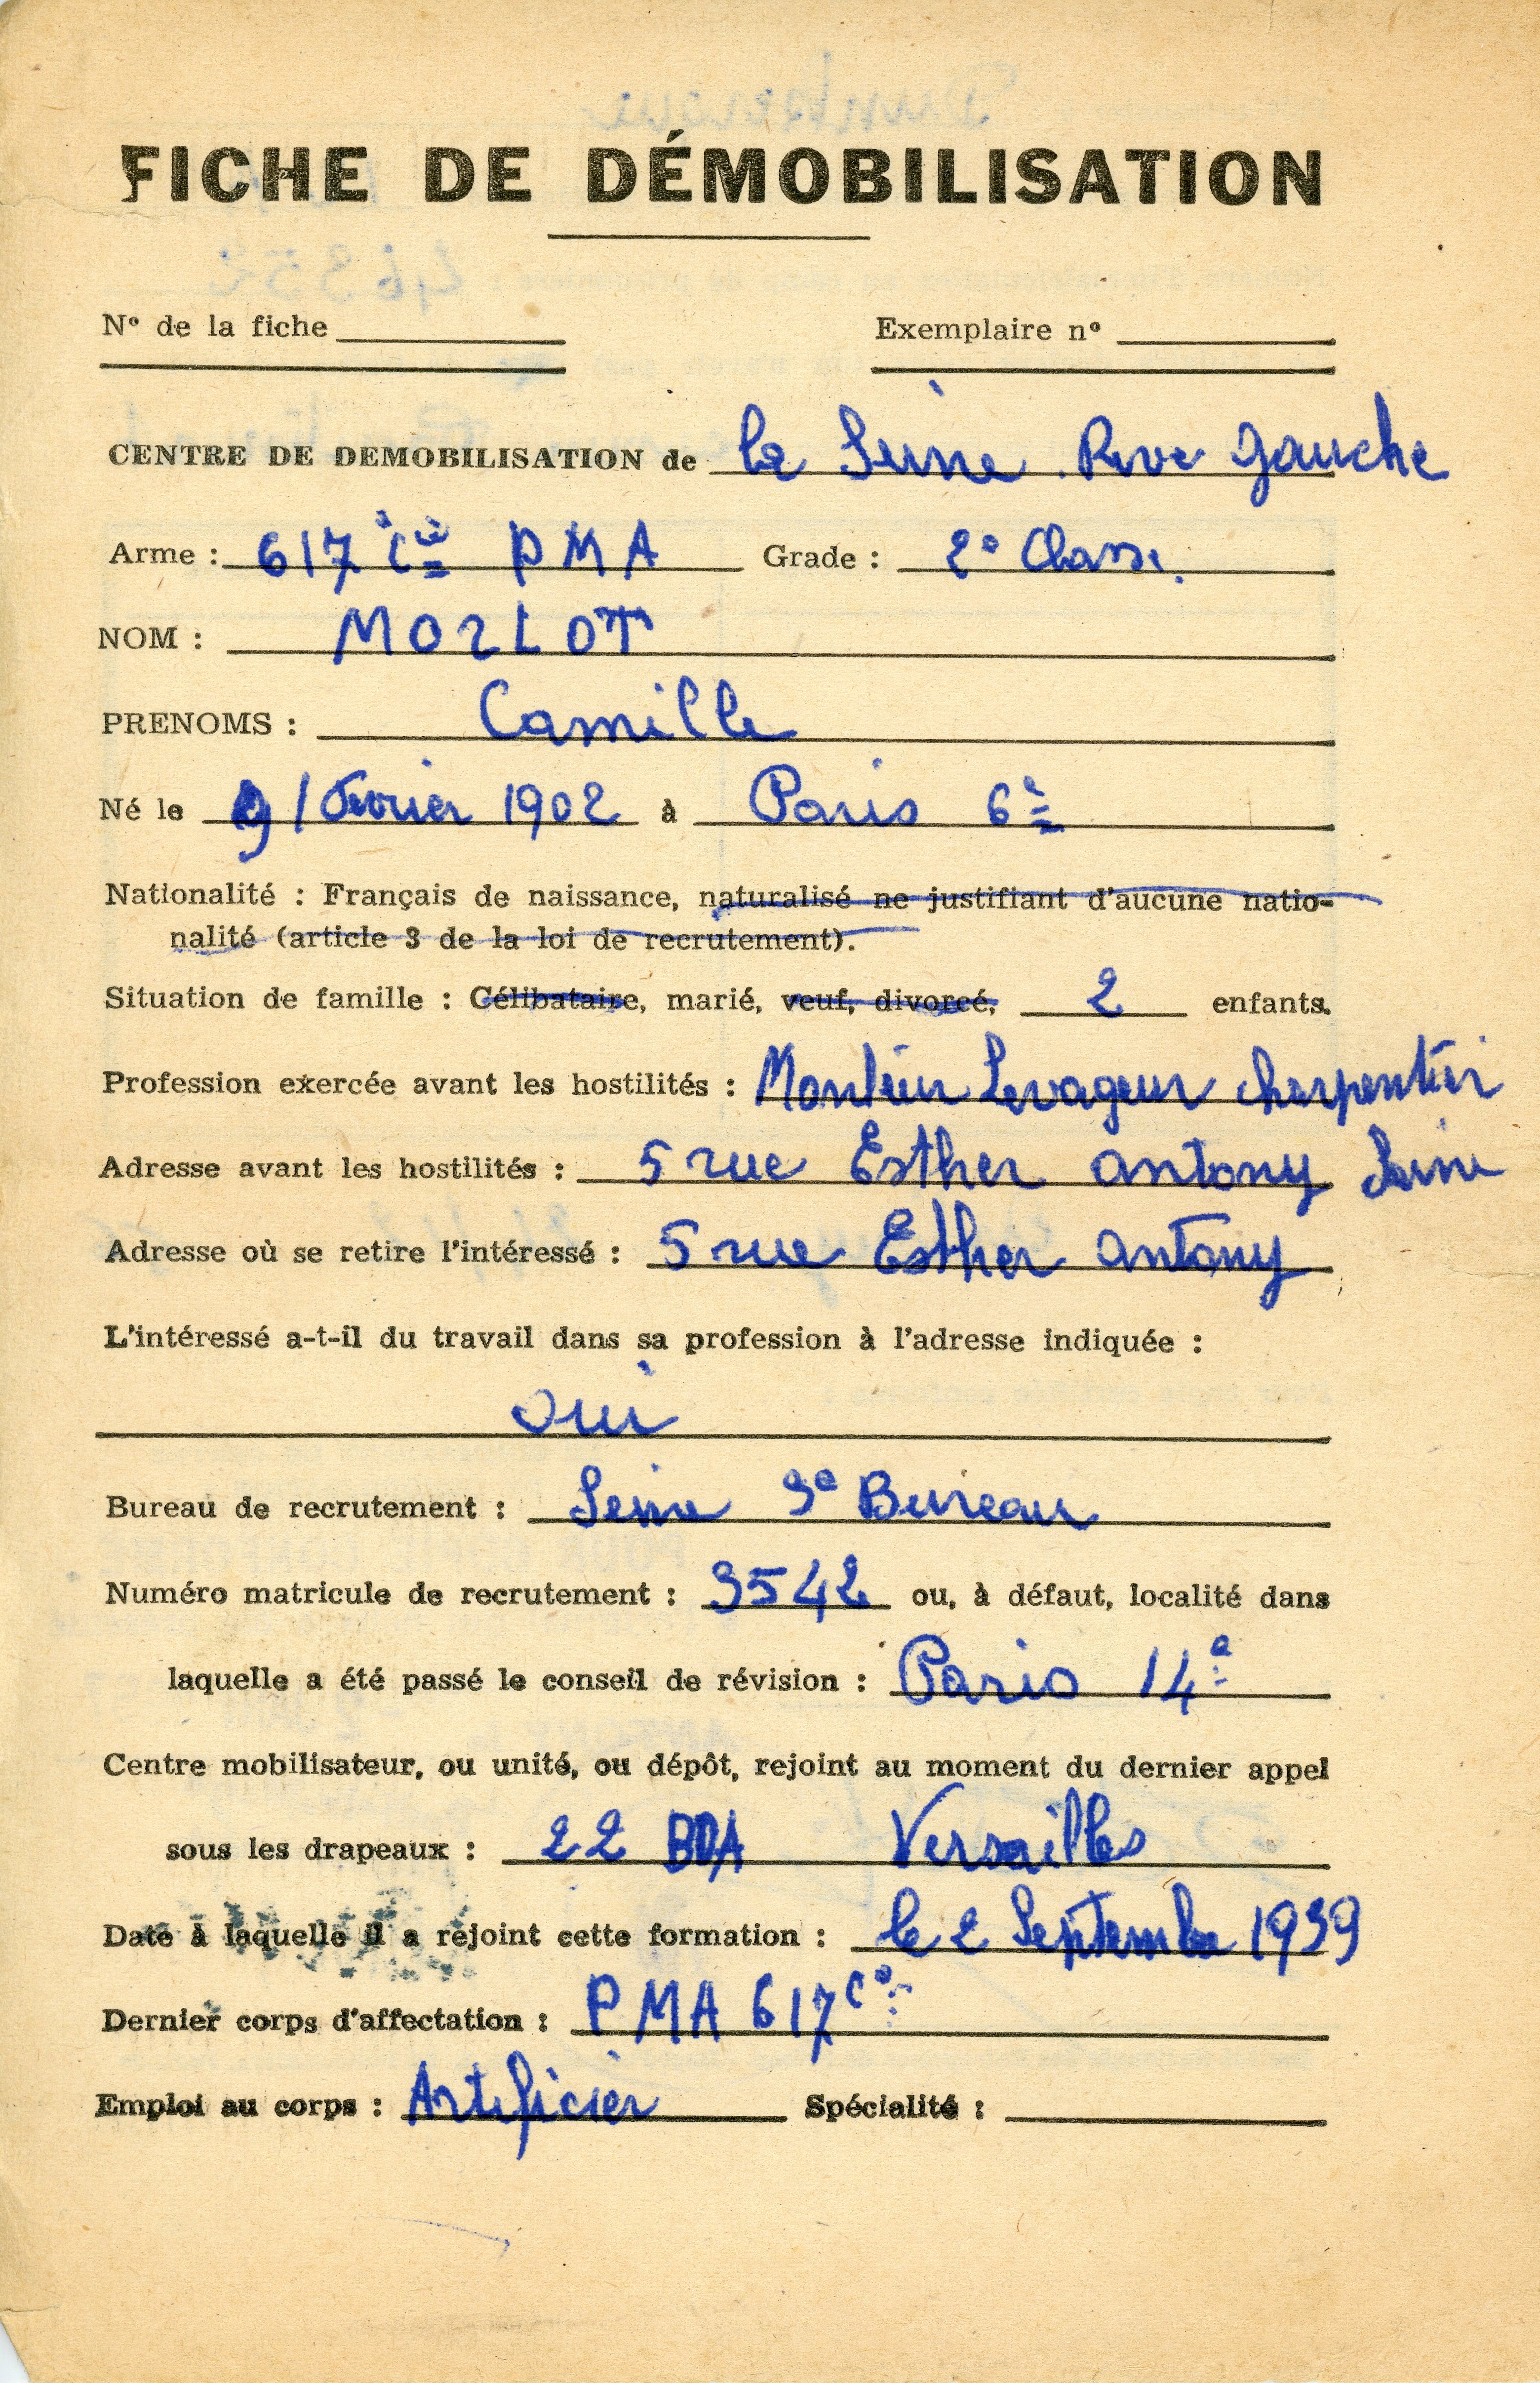 FICHE DE DÉMOBILISATION
N° de la fiche
Exemplaire n°
CENTRE DE DEMOBILISATION de la Seine Rive gauche
Arme : 617 Cie PMA Grade : 2e Classe.
NOM : MORLOT
PRENOMS : Camille
Né le 9 / Fevrier 1902 à Paris 6e
Nationalité : Français de naissance, naturalisé ne justifiant d'aucune natio-
nalité (article 3 de la loi de recrutement).
Situation de famille : Célibataire, marié, veuf, divorcé, 2 enfants.
Profession exercée avant les hostilités : Monteur Levageur charpentier
Adresse avant les hostilités : 5 rue Esther antony Seine
Adresse où se retire l'intéressé : 5 rue Esther antony
L'intéressé a-t-il du travail dans sa profession à l'adresse indiquée :
oui
Bureau de recrutement : Seine 3e Bureau
Numéro matricule de recrutement : 3542 ou, à défaut, localité dans
laquelle a été passé le conseil de révision : Paris 14e
Centre mobilisateur, ou unité, ou dépôt, rejoint au moment du dernier appel
sous les drapeaux : 22 BOA Versailles
Date à laquelle il a rejoint cette formation : le 2 Septembre 1939
Dernier corps d'affectation : PMA 617 Cie
Emploi au corps : Artificier Spécialité :